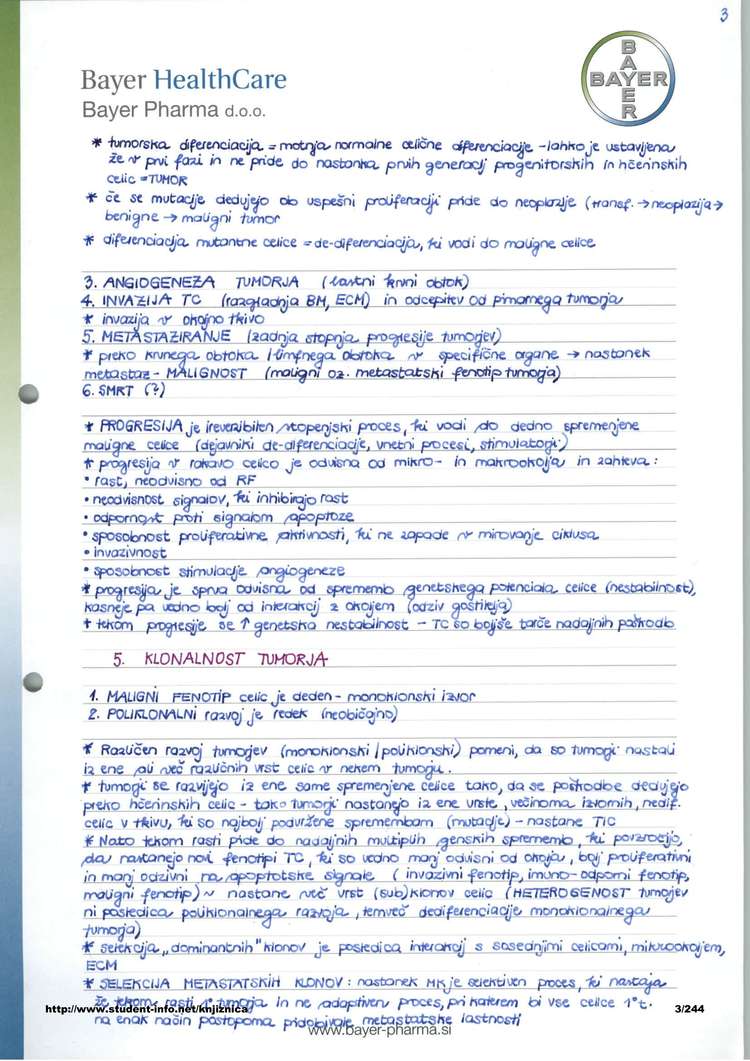 3
Bayer HealthCare
Bayer Pharma d.o.o.
BAYER
BAYER
* tumorska diferenciacija = motnja normalne celične diferenciacije - lahko je ustavljena
že v prvi fazi in ne pride do nastanka prvih generacij progenitorskih in hčerinskih
celic = TUMOR
* če se mutacije dedujejo ob uspešni proliferaciji pride do neoplazije (transf. → neoplazija →
benigne → maligni tumor
* diferenciacija mutantne celice = de-diferenciacija, ki vodi do maligne celice
3. ANGIOGENEZA TUMORJA (lastni krvni obtok)
4. INVAZIJA TC (razgradnja BM, ECM) in odcepitev od primarnega tumorja
* invazija v okojno tkivo
5. METASTAZIRANJE (zadnja stopnja progresije tumorjev)
* preko krvnega obtoka / limfnega obtoka v specifične organe → nastanek
metastaz - MALIGNOST (maligni oz. metastatski fenotip tumorja)
6. SMRT (?)
* PROGRESIJA je ireverzibilen stopenjski proces, ki vodi do dedno spremenjene
maligne celice (dejavniki de-diferenciacije, vnetni procesi, stimulatorji)
* progresija v rakavo celico je odvisna od mikro- in makrookolja in zahteva:
• rast, neodvisno od RF
• neodvisnost signalov, ki inhibirajo rast
• odpornost proti signalom apoptoze
• sposobnost proliferativne aktivnosti, ki ne zapade v mirovanje ciklusa
• invazivnost
• sposobnost stimulacije angiogeneze
* progresija je sprva odvisna od sprememb genetskega potenciala celice (nestabilnost),
kasneje pa vedno bolj od interakcij z okoljem (odziv gostitelja)
* tekom progresije se ↑ genetska nestabilnost - TC so boljše tarče nadaljnih poškodb
5. KLONALNOST TUMORJA
1. MALIGNI FENOTIP celic je deden - monoklonski izvor
2. POLIKLONALNI razvoj je redek (neobičajno)
* Različen razvoj tumorjev (monoklonski / poliklonski) pomeni, da so tumorji nastali
iz ene ali več različnih vrst celic v nekem tumorju.
* tumorji se razvijejo iz ene same spremenjene celice tako, da se poškodbe dedujejo
preko hčerinskih celic - tako tumorji nastanejo iz ene vrste, večinoma izvornih, nedif.
celic v tkivu, ki so najbolj podvržene spremembam (mutacije) - nastane TIC
* Nato tekom rasti pride do nadaljnih multiplih genskih sprememb, ki povzročijo,
da nastanejo novi fenotipi TC, ki so vedno manj odvisni od okolja, bolj proliferativni
in manj odzivni na apoptotske signale (invazivni fenotip, imuno-odporni fenotip,
maligni fenotip) ~ nastane več vrst (sub)klonov celic (HETEROGENOST tumorjev
ni posledica poliklonalnega razvoja, temveč dediferenciacije monoklonalnega
tumorja)
* selekcija „dominantnih" klonov je posledica interakcij s sosednjimi celicami, mikrookoljem,
ECM
* SELEKCIJA METASTATSKIH KLONOV: nastanek MK je selektiven proces, ki nastaja
že tekom rasti 1° tumorja in ne adaptiven proces, pri katerem bi vse celice 1° t.
na enak način postopoma pridobivale metastatske lastnosti
http://www.student-info.net/knjiznica
3/244
www.bayer-pharma.si